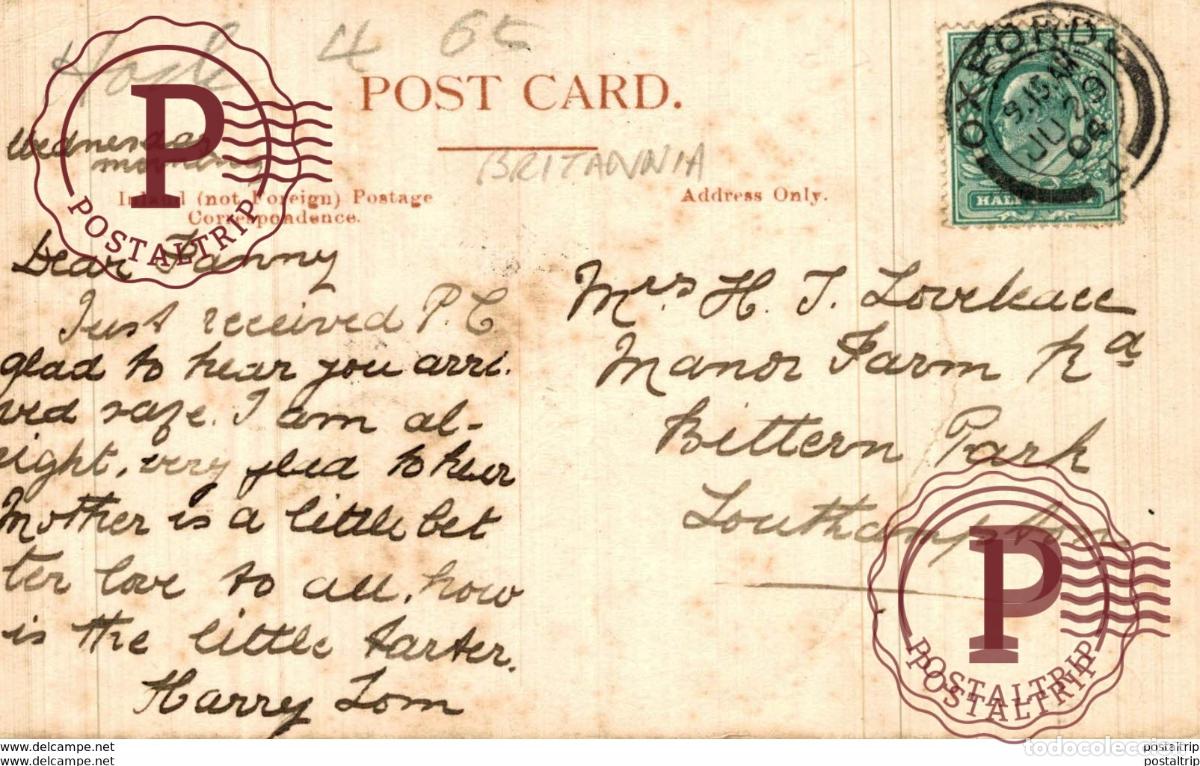 4 6c
POST CARD.
BRITANNIA
Wednesday
morning
Inland (not Foreign) Postage
Correspondence.
Address Only.
OXFORD
9.15 AM
JU 29
04
HALF
Dear Fanny
Just received P.C
glad to hear you arri.
ved safe. I am al-
right, very glad to hear
Mother is a little bet
ter love to all, how
is the little tarter.
Harry Tom
Mrs H. T. Lovelace
Manor Farm Rd
Bittern Park
Southampton
P
POSTALTRIP
P
POSTALTRIP
POSTALTRIP
todocoleccion
www.delcampe.net
www.delcampe.net
postaltrip
postaltrip